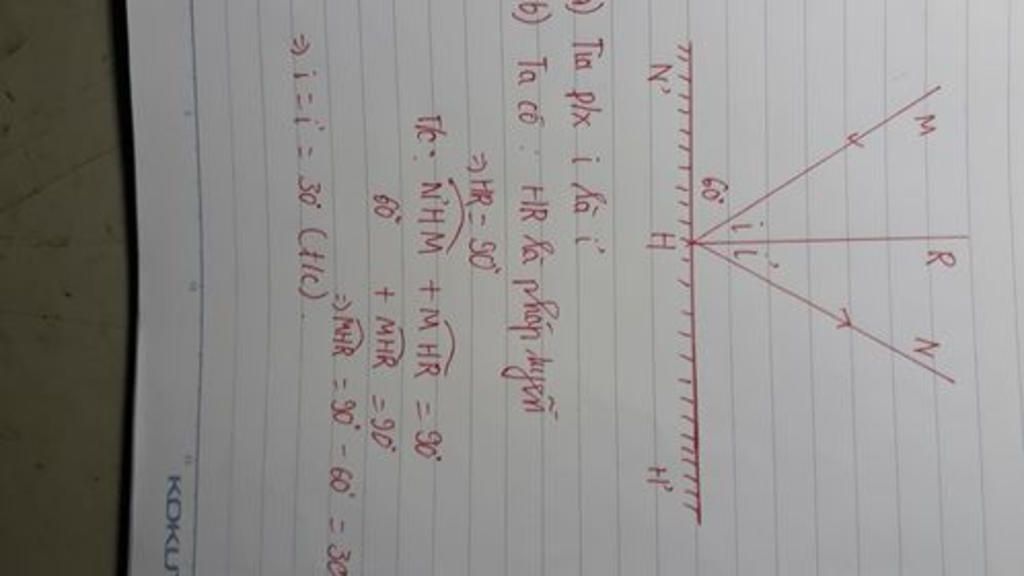 M R N
i i'
60°
N' H H'
a) Tia p/x i là i'
b) Ta có : HR là pháp tuyến
⇒ HR = 90°
T/c : N'HM + MHR = 90°
60° + MHR = 90°
⇒ MHR = 90° - 60° = 30
⇒ i = i' = 30° (t/c).
KOKU